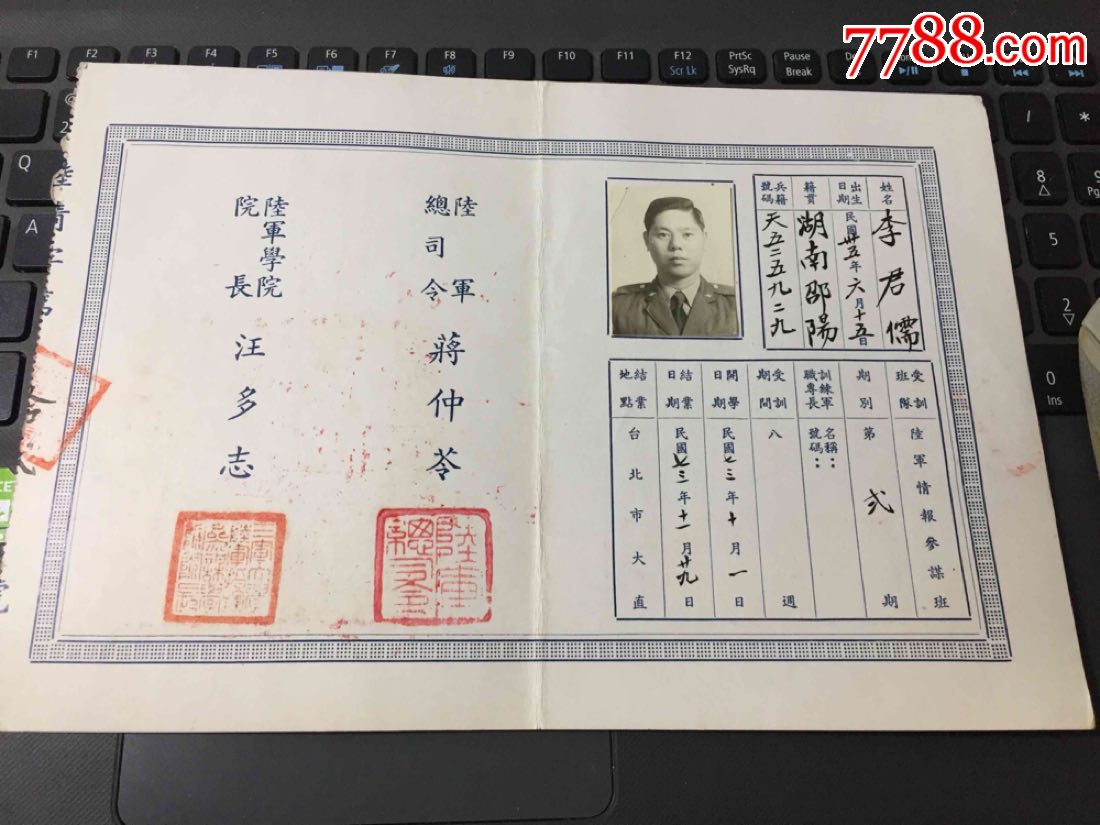 7788.com
姓名 李君儒
出生日期 民國卅五年六月十五日
籍貫 湖南邵陽
兵籍號碼 天五二五九二九
受訓班隊 陸軍情報參謀班
期別 第弍期
訓練軍職專長 名稱： 號碼：
受訓期間 八週
開學日期 民國七三年十月一日
結業日期 民國七三年十一月廿九日
結業地點 台北市大直
陸軍總司令 蔣仲苓
陸軍學院院長 汪多志
陸軍總司令
F1 F2 F3 F4 F5 F6 F7 F8 F9 F10 F11 F12 PrtSc Pause
Scr Lk SysRq Break
Q
A
/ *
8 9
5
2
0
Ins